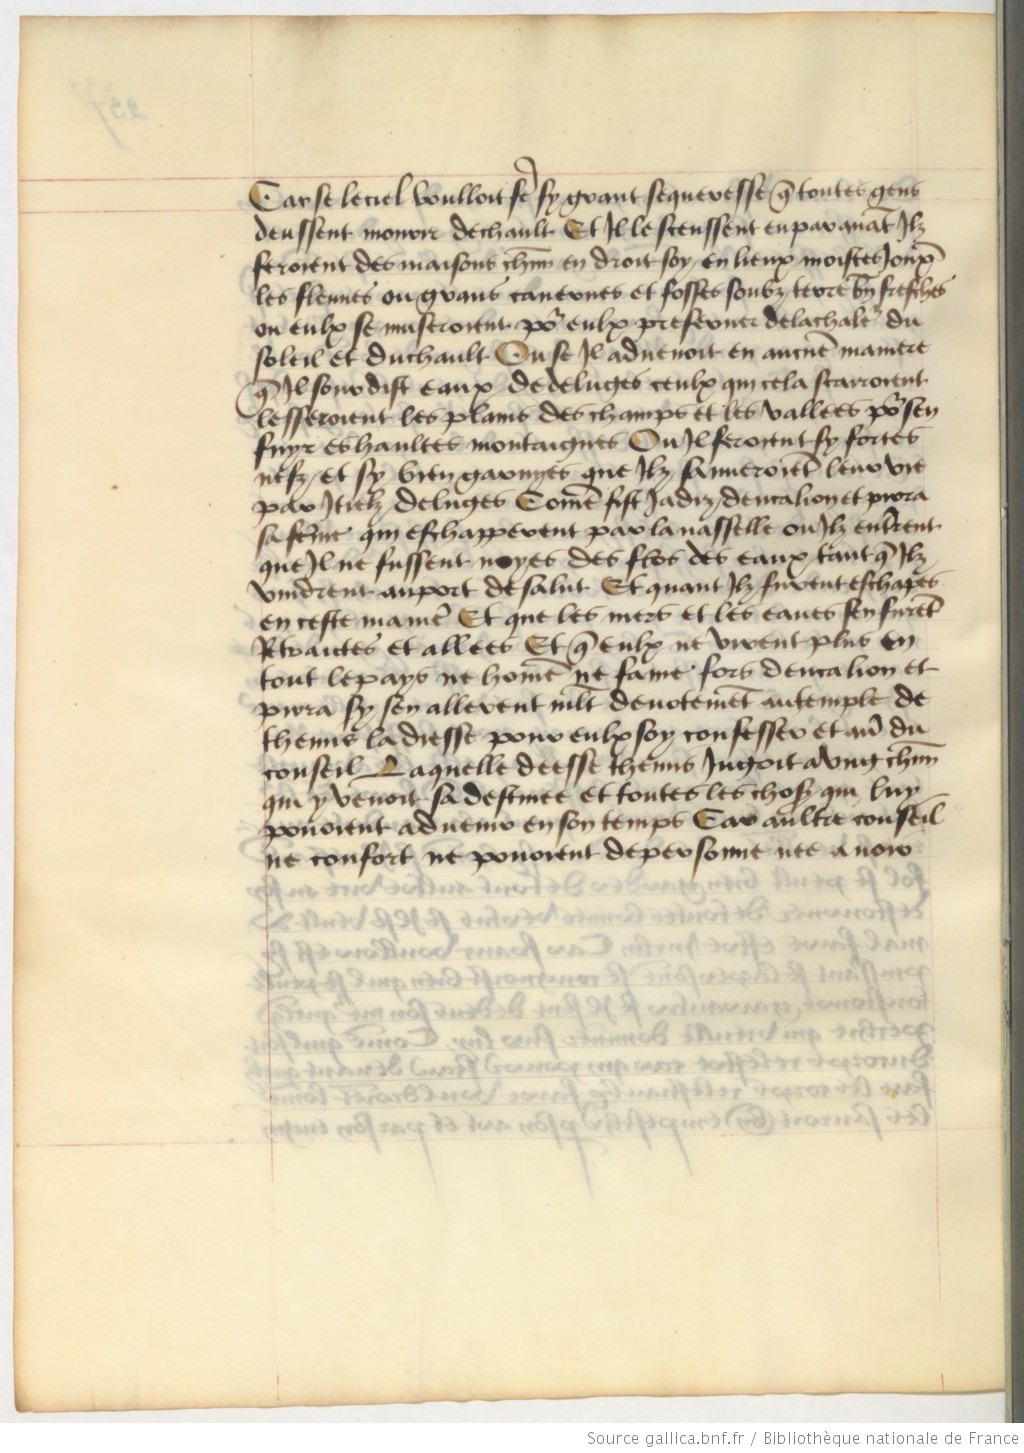 Car se le ciel voulloit fe sy grant secqueresse q̃ toutes gens
deussent mourir de chault Et Il le sceussent en par auãt Ilz
feroient des maisons chũn en droit soy en lieux moistes Joux̃
les fleuues ou grans cauernes et fosses soubz terre bñ fresches
ou eulx se musseroient po᷑ eulx preseruer de la chale᷑ du
soleil et du chault Ou se Il aduenoit en aucũe maniere
q̃ Il sourdist eaux de deluges ceulx qui cela scarroient
lesseroient les plains des champs et les vallees po᷑ sen
fuyr es haultes montaignes Ou Il feroient sy fortes
nefz et sy bien garnyes que Ilz sauueroiẽt leur vie
par Itielz deluges Com̃e fist Jadiz deucalion et pirra
sa fem̃e qui eschapperent par la nasselle ou Ilz entrerent
que Il ne fussent noyes des flos des eaux tant q̃ Ilz
vindrent au port de salut Et quant Ilz furent eschapes
en ceste manie᷑ Et que les mers et les eaues sen furẽt
Retraictes et allees Et q̃ eulx ne virent plus en
tout le pays ne hom̃e ne fame fors deucalion et
pirra sy sen allerent ml̃t deuotemẽt au temple de
themis la diesse pour eulx soy confesser et au᷑ du
conseil Laquelle deesse themis Jugoit a vng chũn
qui y venoit sa destinee et toutes les chosz qui luy
pouoient aduenir en son temps Car aultre conseil
ne confort ne pouoient de personne nee auoir
Source gallica.bnf.fr / Bibliothèque nationale de France